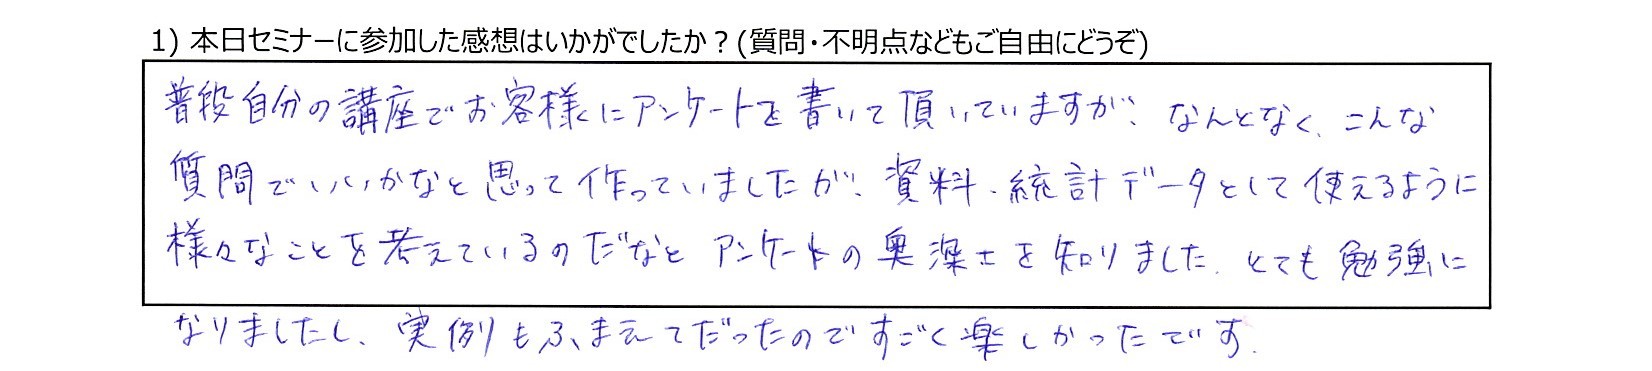 1) 本日セミナーに参加した感想はいかがでしたか？(質問・不明点などもご自由にどうぞ)
普段自分の講座でお客様にアンケートを書いて頂いていますが、なんとなく、こんな
質問でいいかなと思って作っていましたが、資料、統計データとして使えるように
様々なことを考えているのだなとアンケートの奥深さを知りました。とても勉強に
なりましたし、実例もふまえてだったのですごく楽しかったです。